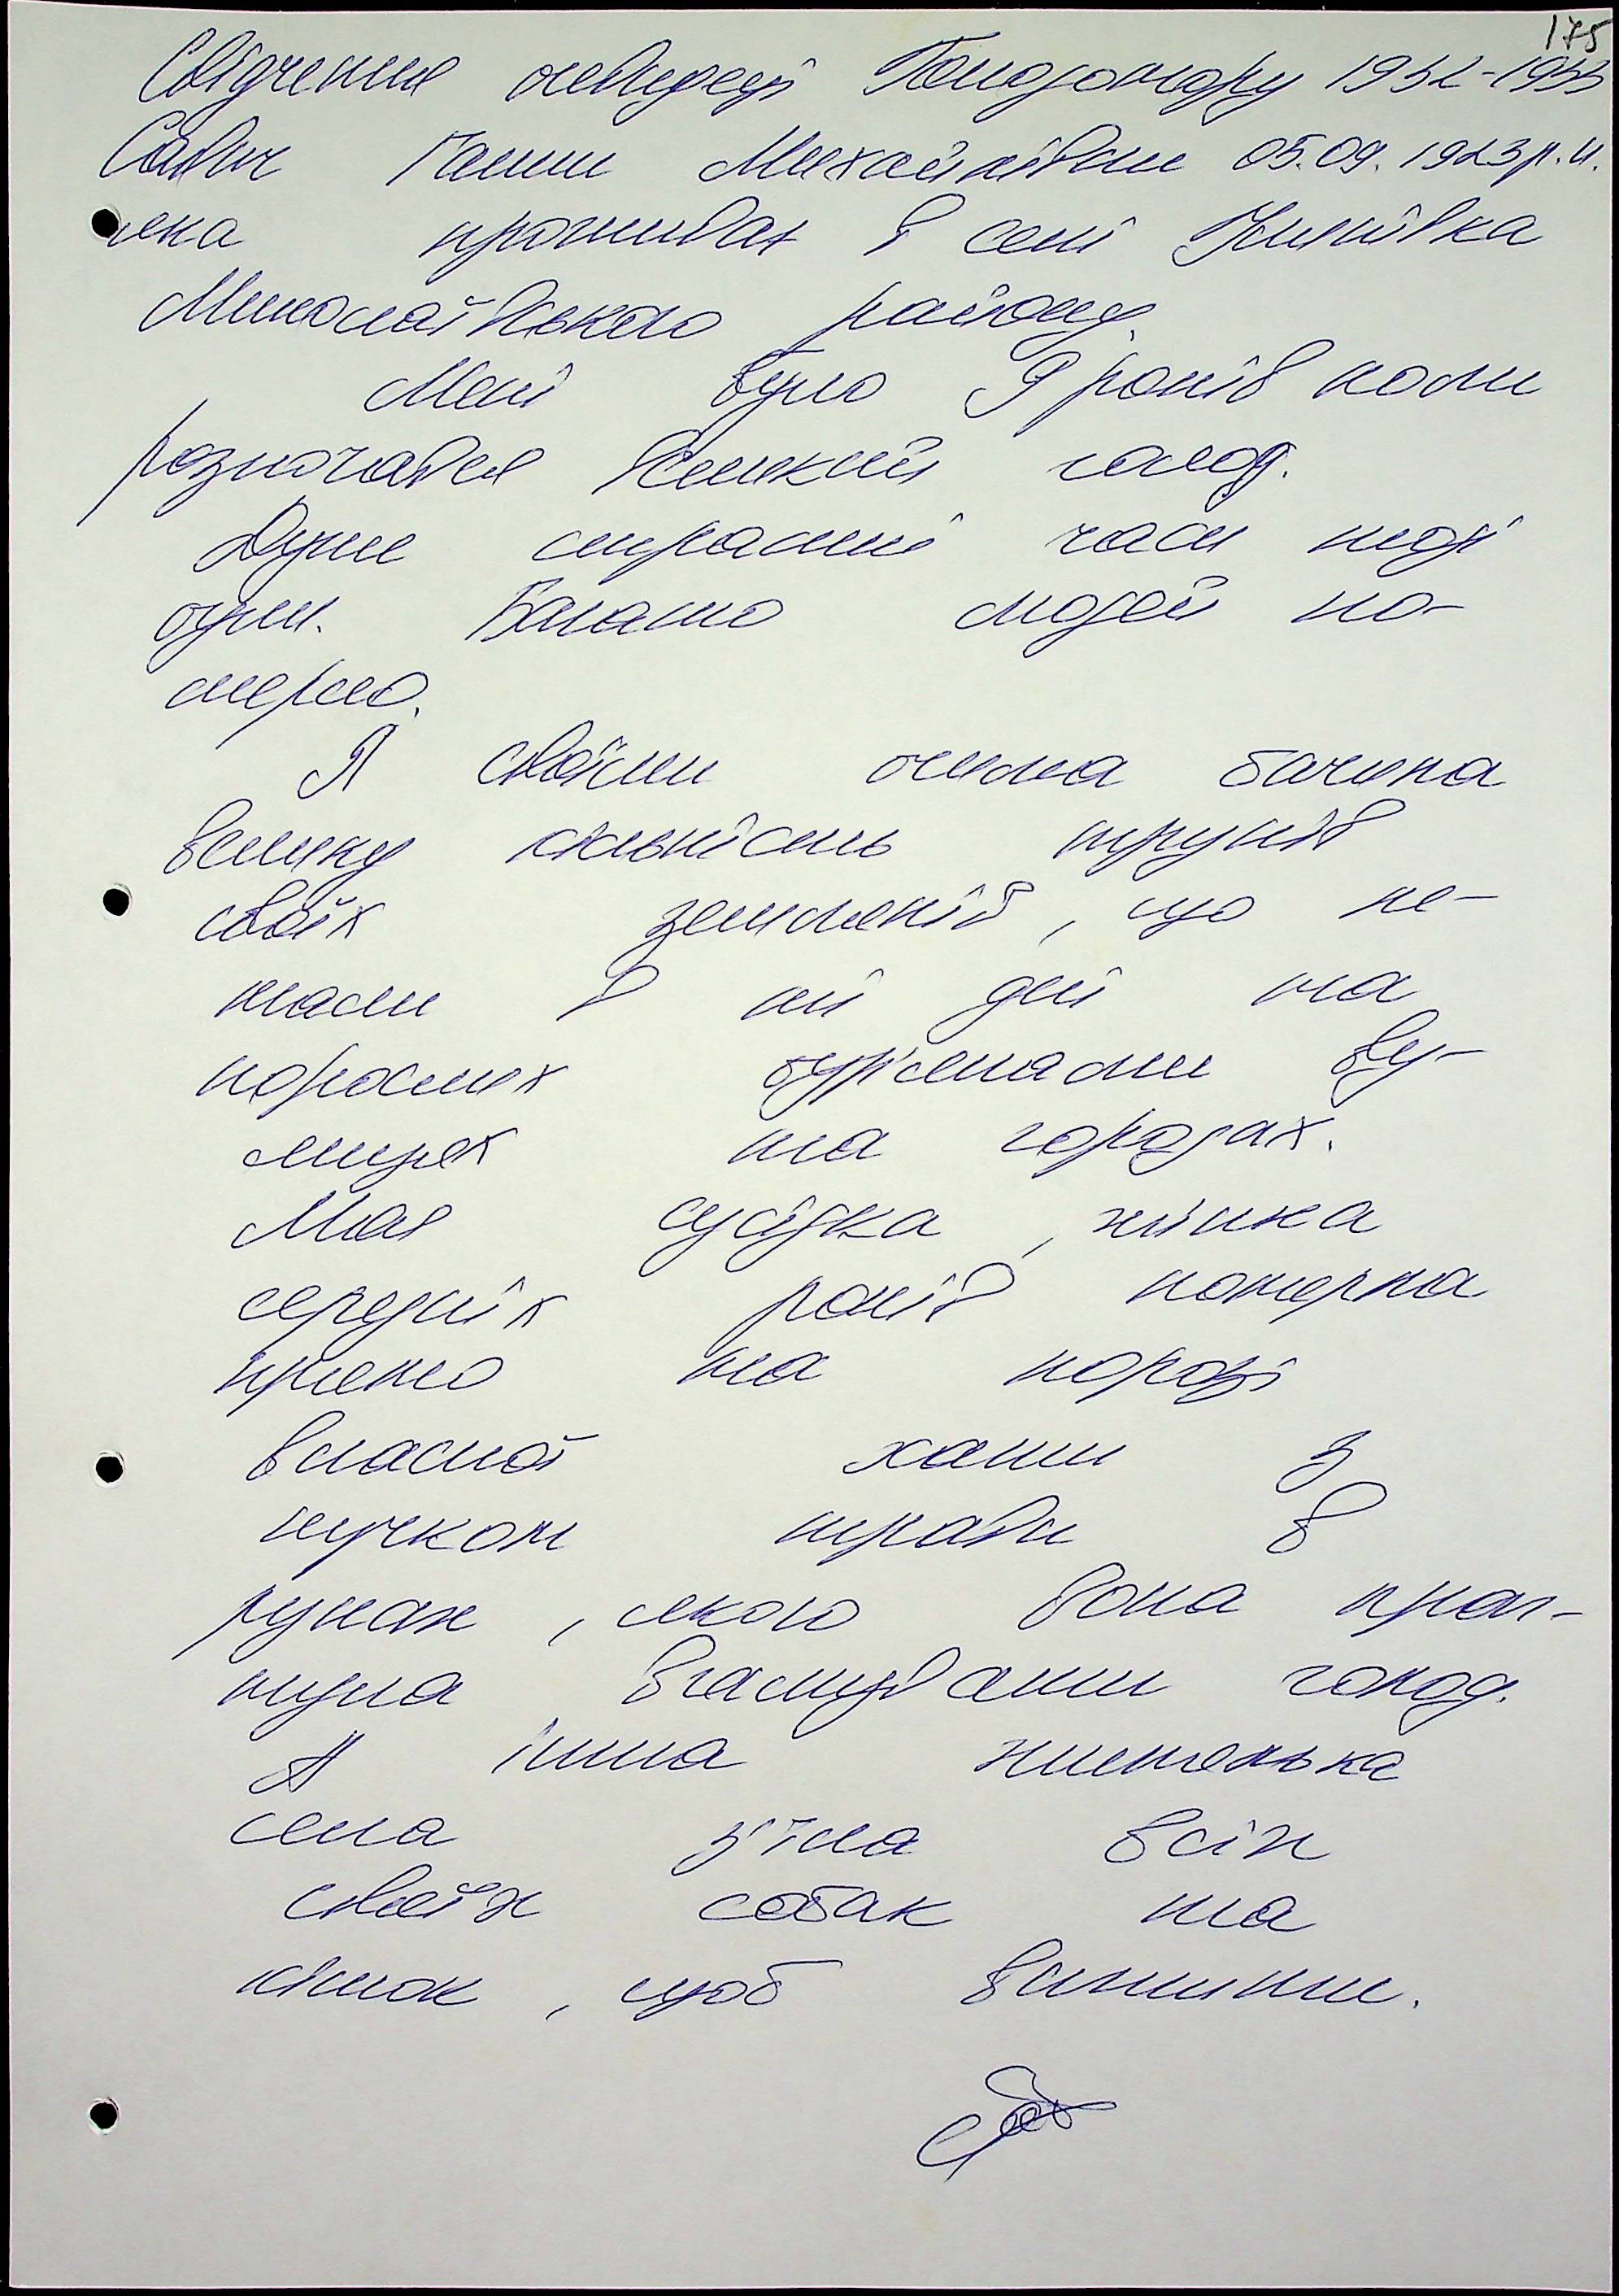 175
Свідчення очевидеця Голодомору 1932-1933
Савич Ганни Михайлівни 05.09.1923 р.н.
яка проживає в селі
Миколаївського району.
Мені було 9 років коли
розпочався Великий голод.
Дуже страшні часи тоді
були. Багато людей по-
мерло.
Я своїми очима бачила
велику кількість трупів
своїх земляків, що ле-
жали в ті дні на
порослих бур'янами ву-
лицях та городах.
Моя сусідка, жінка
середніх років померла
прямо на порозі
власної хати з
пучком трави в
руках, якою вона праг-
нула вгамувати голод.
А інша жителька
села з'їла всіх
своїх собак та
кішок, щоб вижити.